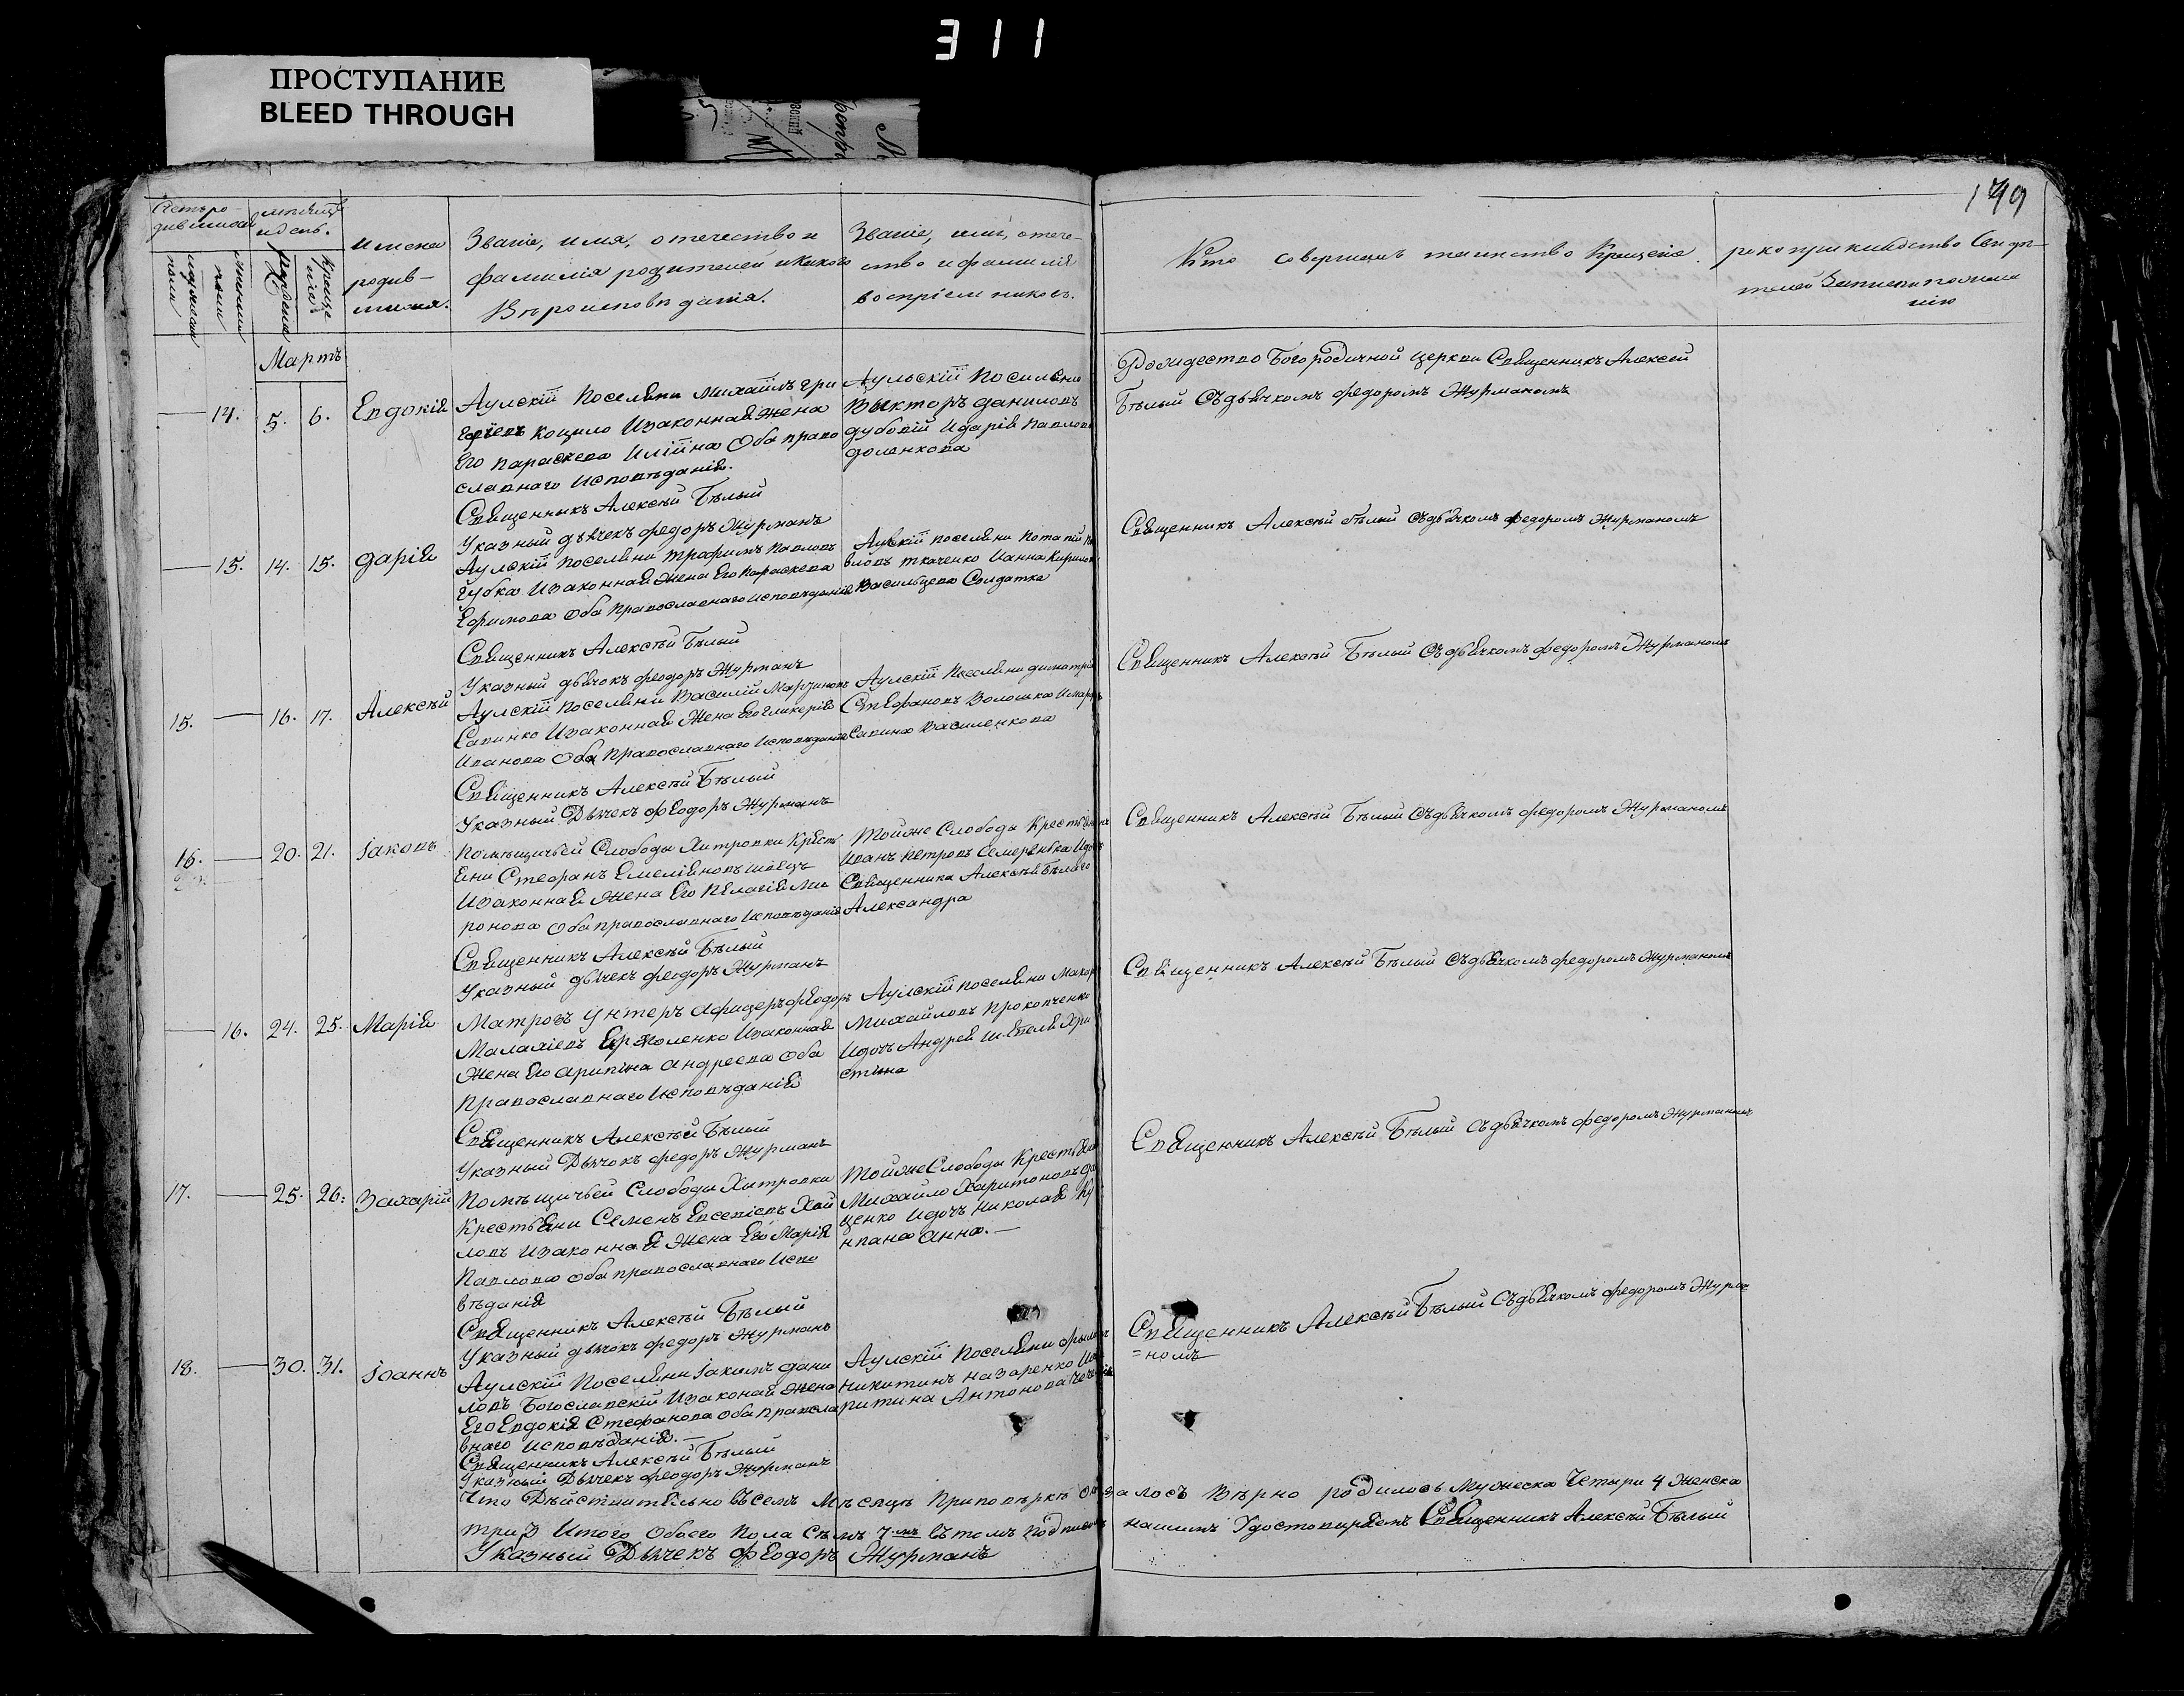 311
ПРОСТУПАНИЕ
BLEED THROUGH
149
Счетъ ро-
дившихся
мѣсяцъ
и день.
мужеска
пола
женска
пола
рожденія
креще
нія
имена
родив-
шихся.
Званіе, имя, отечество и
фамилія родителей и какого
Вѣроисповѣданія.
Званіе, имя, отече-
ство и фамилія
воспріемниковъ.
Кто совершилъ таинство Крещенія.
рукоприкладство Свидѣ-
телей записи по жела
нію
Мартъ
14. 5. 6. Евдокія
Аулскій Поселяни Михаилъ Гри
горіевъ Коцыло Изаконная Жена
Его Параскева Иліина Оба право
славнаго Исповѣданія.
Священникъ Алексѣй Бѣлый
Указный дьячекъ федоръ Журманъ
Аульскій Поселяни
Викторъ даниловъ
дубовій И дарія Павлова
доленкова
Рождество Богородичной церкви Священникъ Алексѣй
Бѣлый Съдьячкомъ федоромъ Журманомъ
15. 14. 15. дарія
Аулскій Поселяни Трофимъ Павловъ
Губка Изаконная Жена Его Параскева
Ефимова Оба Православнаго Исповѣданія
Священникъ Алексѣй Бѣлый
Указный дьячокъ феодоръ Журманъ
Аулскій поселяни Потапій Па
вловъ Ткаченко Ианна Кирилова
Васильцева Солдатка
Священникъ Алексѣй Бѣлый Съдьячкомъ федоромъ Журманомъ
15. 16. 17. Алексѣй
Аулскій Поселяни Василій Мартиновъ
Савинко Изаконная Жена Его Гликерія
Иванова Оба Православнаго Исповѣданія
Священникъ Алексѣй Бѣлый
Указный Дьячекъ феодоръ Журманъ
Аулскій Поселяни димитрій
Стефановъ Волошко
Василенкова
Священникъ Алексѣй Бѣлый Съдьячкомъ федоромъ Журманомъ
16. 20. 21. Іаковъ
Помѣщичьей Слободы Хитровки Крестъ
яни Стефанъ Емеліяновъ шевцъ
Изаконная Жена Его Пелагія Ми
ронова Оба православнаго Исповѣданія
Священникъ Алексѣй Бѣлый
Указный дьячекъ феодоръ Журманъ
Тойже Слободы Крестьянинъ
Иванъ Петровъ Семеренька Идочь
Священника Алексѣй Бѣлаго
Александра
Священникъ Алексѣй Бѣлый Съдьячкомъ федоромъ Журманомъ
16. 24. 25. Марія
Матрозъ Унтеръ Афицеръ феодоръ
Малахіевъ Ермоленко Изаконная
Жена Его Агрипина Андреева Оба
Православнаго Исповѣданія
Священникъ Алексѣй Бѣлый
Указный Дьячокъ федоръ Журманъ
Аулскій поселяни Макаръ
Михайловъ Прокопченко
Идочь Андрея Шепеля Хри
стина
Священникъ Алексѣй Бѣлый Съдьячкомъ федоромъ Журманомъ
17. 25. 26. Захарій
Помѣщичьей Слободы Хитровка
Крестьяни Семенъ Евсевіевъ
Изаконная Жена Его Марія
Павлова Оба православнаго Испо
вѣданія
Священникъ Алексѣй Бѣлый
Указный дьячокъ федоръ Журманъ
Тойже Слободы Крестьяни
Михайло Харитоновъ
ценко Идочъ Николая
Анна.—
Священникъ Алексѣй Бѣлый Съдьячкомъ федоромъ Журманомъ
18. 30. 31. Іоаннъ
Аулскій Поселяни Іакимъ дани
ловъ Богославскій Изаконая Жена
Его Евдокія Стефанова Оба правосла
внаго Исповѣданія.—
Священникъ Алексѣй Бѣлый
Указный Дьячекъ феодоръ Журманъ
Аулскій Поселяни
Никитинъ Назаренко
Антонова
Священникъ Алексѣй Бѣлый Съдьячкомъ федоромъ Журма
=номъ
Что Дѣйствительно Въсемъ Мѣсяцѣ Приповѣркѣ Оказалось Вѣрно родилось Мужеска Четыри 4 Женска
три 3 Итого Обоего Пола Сѣмъ 7мъ Втомъ Подписомъ нашимъ Удостовиряемъ Священникъ Алексѣй Бѣлый
Указный Дьячекъ феодоръ Журманъ